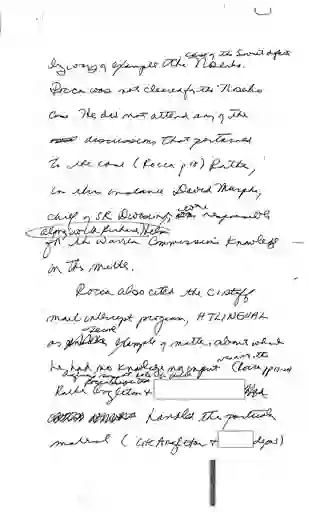 by way of example the case of the Soviet defector Nosenko.
Rocca was not cleared for the Nosenko
case. He did not attend any of the
discussions that pertained
to the case (Rocca p 18) Rather,
in this instance David Murphy,
chief of SR Division, was responsible
along with Richard Helms
for the Warren Commission's knowledge
on this matter.
Rocca also cited the CI staff
mail intercept program, HTLINGUAL
as example of matter about which
he had no knowledge nor input (Rocca p
Rather Angleton +
handled the particular
material (cite Angleton + depos)